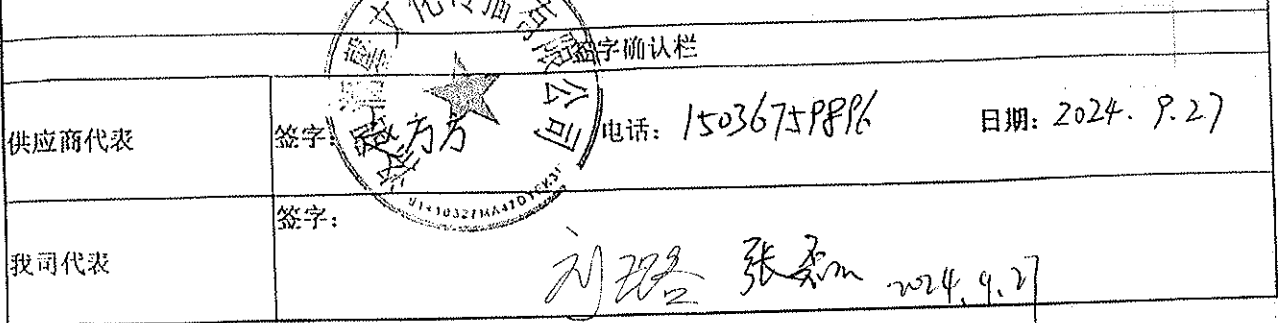 文化传播有限公司
签字确认栏
供应商代表
签字:
赵方方
电话: 15036759896
日期: 2024.9.27
我司代表
签字:
刘璐 张 2024.9.27